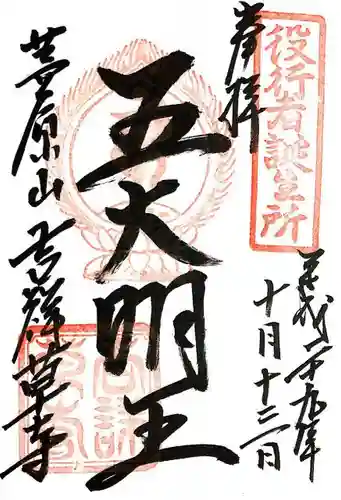 奉拝
役行者誕生所
平成二十九年
十月十二日
五大明王
茅原山
吉祥草寺